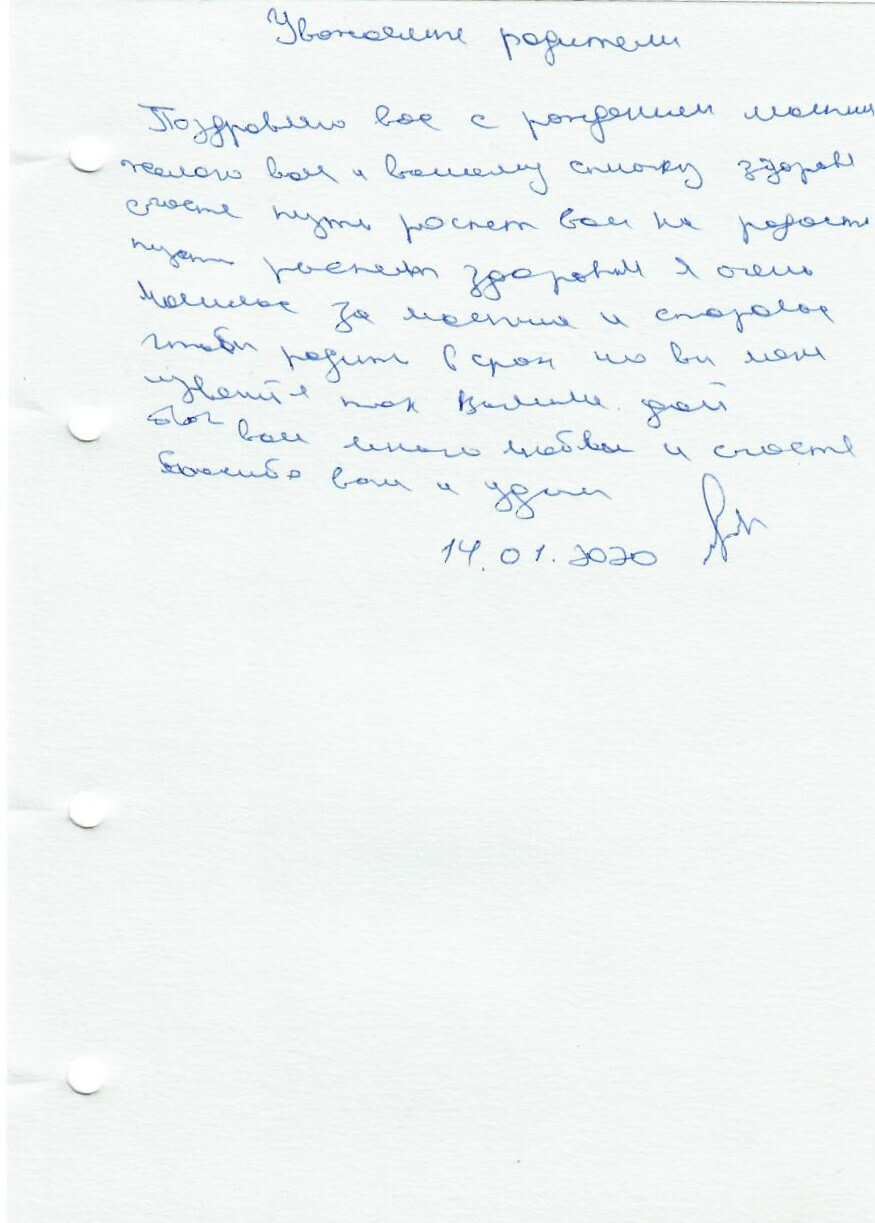 Уважаемие родители
Поздровляю вас с рождением малыш
желаю вам и вашему сыночку здоров
счастя пусть роснет вам на радость
пусть роснет здоровым я очень
малилас за малыша и старалас
чтоби родить в срок но ви меня
извените так вышли. дай
Бог вам много любви и счастя
Спасибо вам и удачи
14.01.2020